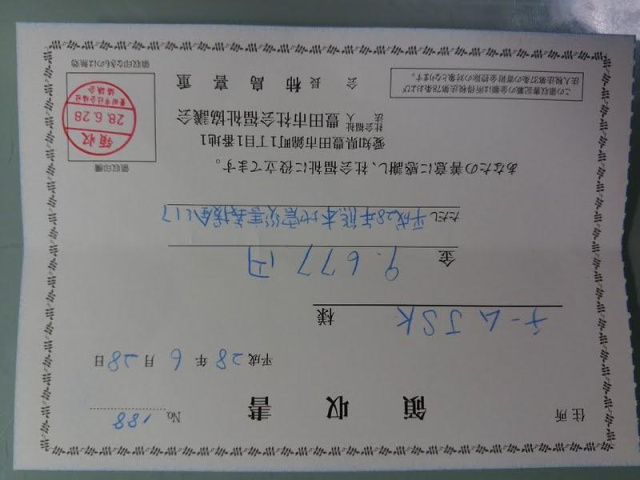 No. 188
領収書
住所
平成28年6月28日
チームJSK 様
金 9.677円
ただし 平成28年熊本地震災害義援金として
あなたの善意に感謝し、社会福祉に役立てます。
愛知県豊田市錦町1丁目1番地1
社会福祉法人 豊田市社会福祉協議会
会長 柿島喜重
領収印欄
領収
28.6.28
領収印なきものは無効
この領収書記載の金額は所得税法第78条および
法人税法第37条の寄附金控除の対象となります。